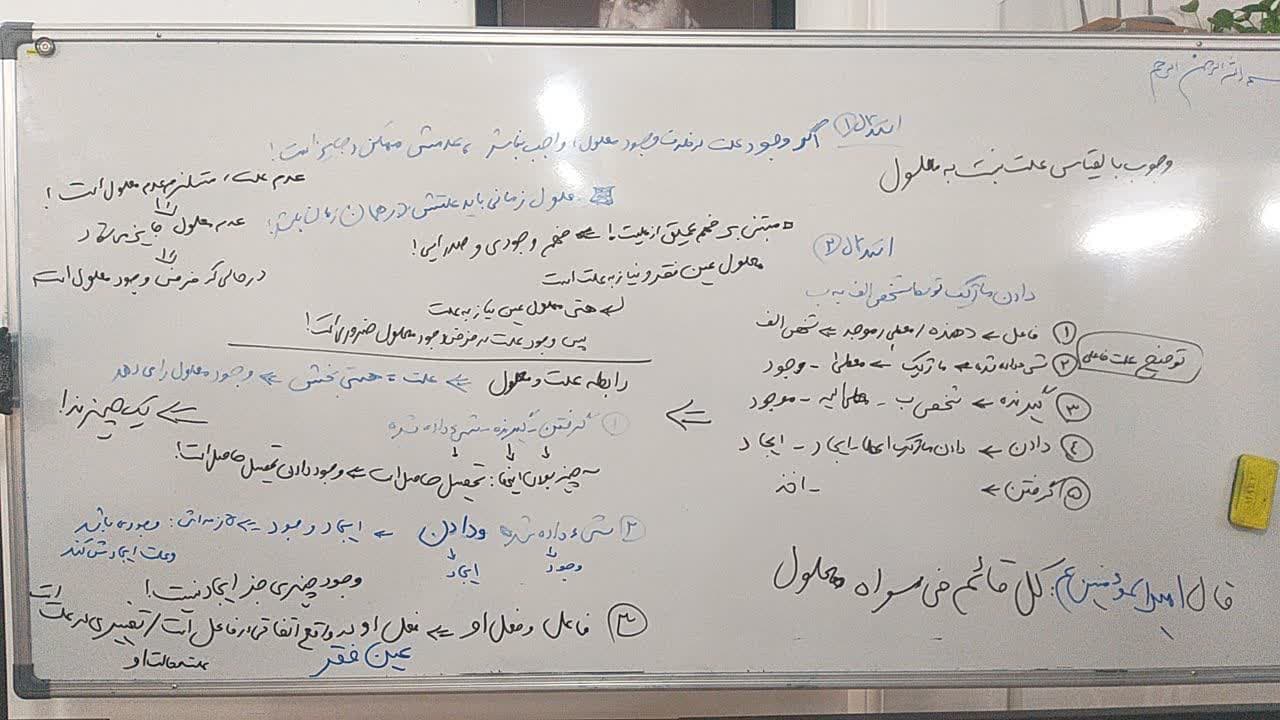 بسم الله الرحمن الرحیم
وجوب بالقیاس علت نسبت به معلول
استدلال ۱) اگر وجود علت در ظرف وجود معلول، واجب نباشد، عدمش ممکن و جایز است!
عدم علت، مستلزم عدم معلول است!
عدم معلول جایز می‌شود
در حالی که فرض وجود معلول است
معلول زمانی باید علتش در همان زمان باشد!
استدلال ۲)
مبتنی بر فهم عمیق از علیت! ⇐ فهم وجودی و صدرایی!
معلول عین فقر و نیاز به علت است
هستی معلول عین نیاز به علت
پس وجود علت در فرض وجود معلول ضروری است!
توضیح علت فاعلی
دادن ماژیک توسط شخص الف به ب
۱) فاعل ← دهنده / معطی / موجد ← شخص الف
۲) شیء داده شده ← ماژیک ← معطی - موجود
۳) گیرنده ← شخص ب - معطی الیه - موجود
۴) دادن ← دادن ماژیک اعطا - ایجاد - ایجاد
۵) گرفتن ← - اخذ
رابطه علت و معلول ⇐ علت = هستی بخش ⇐ وجود معلول را می دهد
۱) گرفتن - گیرنده - شیء داده شده ⇐ یک چیزند!
سه چیز بودن اینها: تحصیل حاصل است ⇐ وجود دادن تحصیل حاصل است!
۲) شیء داده شده و دادن ← ایجاد وجود ⇐ لازمه اش: وجودی باشد
وجود ایجاد
و علت ایجادش کند
وجود چیزی جز ایجاد نیست!
۳) فاعل و فعل او ⇐ فعل او در واقع اتفاقی در فاعل است / تغییری در علت است
عین فقر
حالت او
قال امیرالمومنین ع: کل قائم فی سواه معلول